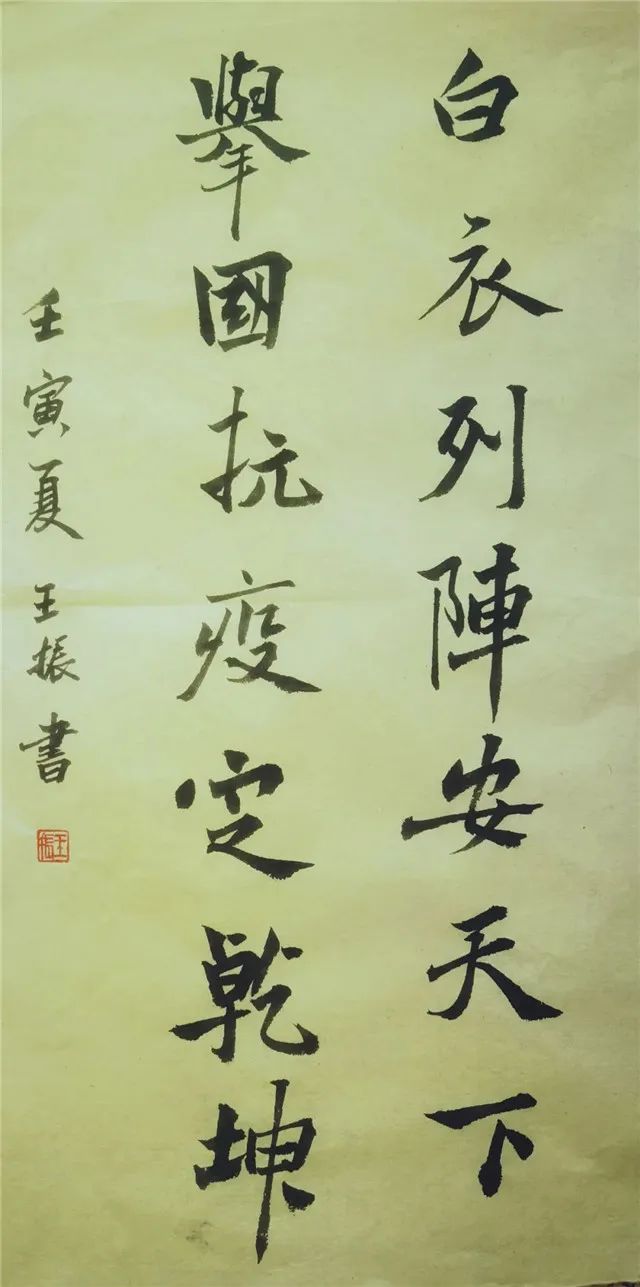 白衣列陣安天下
舉國抗疫定乾坤
壬寅夏 王振書
王振